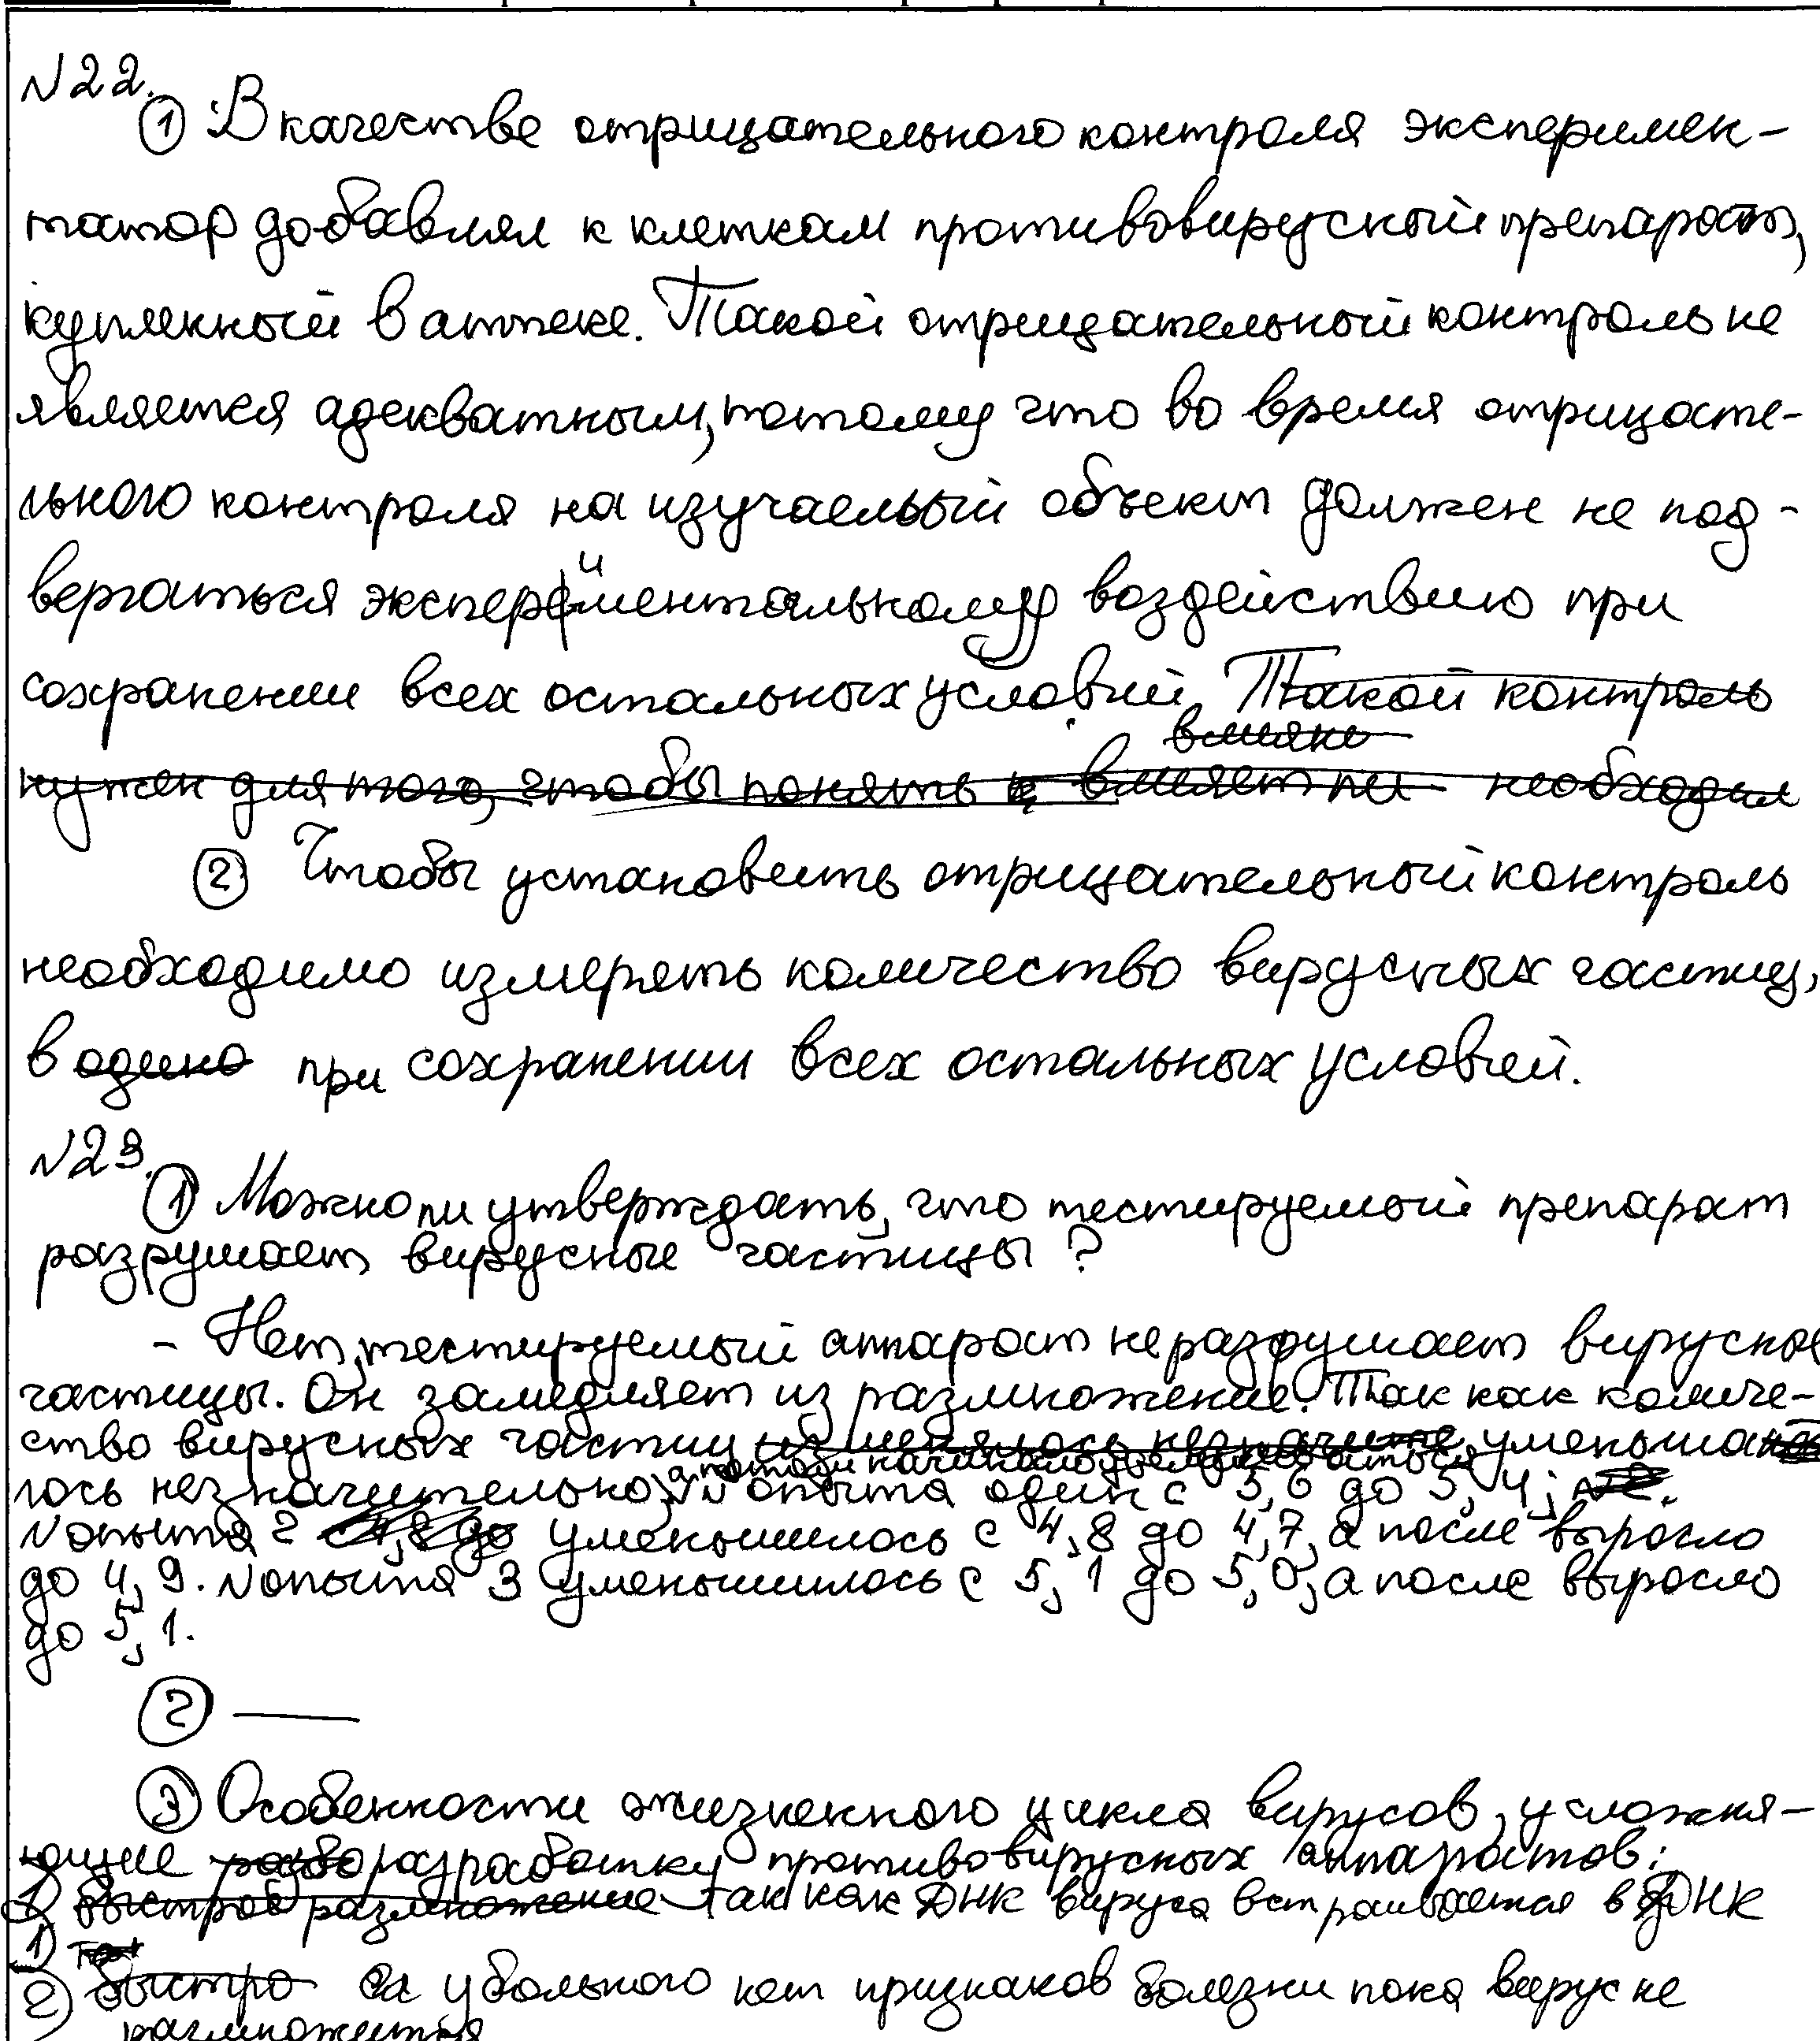 №22.
① В качестве отрицательного контроля эксперимен-
татор добавлял к клеткам противовирусный препарат,
купленный в аптеке. Такой отрицательный контроль не
является адекватным, потому что во время отрицате-
льного контроля на изучаемый объект должен не под-
вергаться экспериментальному воздействию при
сохранении всех остальных условий. Такой контроль
влияне
нужен для того, чтобы понять влияет ли необходим
② Чтобы установить отрицательный контроль
необходимо измерять количество вирусных частиц,
в одино при сохранении всех остальных условий.
№23.
① Можно ли утверждать, что тестируемый препарат
разрушает вирусные частицы?
- Нет, тестируемый аппарат не разрушает вирусные
частицы. Он замедляет из размножение. Так как количе-
ство вирусных частиц изменялось незначите уменьша
а потом начинало увеличиваться
лось незначительно; № опыта один с 5,6 до 5,4;
№ опыта 2 с 4,8 до уменьшилось с 4,8 до 4,7, а после выросло
до 4,9. № опыта 3 уменьшилось с 5,1 до 5,0, а после выросло
до 5,1.
② —
③ Особенности жизненного цикла вирусов, усложня-
ющие разработку противовирусных аппаратов:
1) быстрое размножение так как ДНК вируса встраивается в ДНК
1)
2) быстро у больного нет признаков болезни пока вирус не
размножится